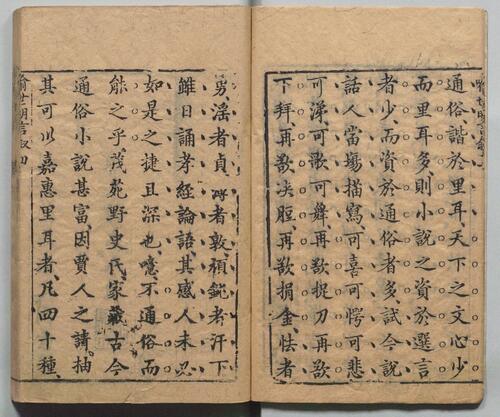 通俗諧於里耳、天下之文心少
而里耳多、則小說之資於選言
者少、而資於通俗者多、試今說
話人當塲描寫可喜可愕可悲
可涕、可歌可舞、再欲捉刀、再欲
下拜、再欲决脰、再欲捐金、怯者
勇、淫者貞、薄者敦、頑鈍者汗下
雖日誦孝經論語、其感人未必
如是之捷且深也、噫、不通俗而
能之乎、茂苑野史氏、家藏古今
通俗小說甚富、因賈人之請、抽
其可以嘉惠里耳者、凡四十種、
喻世明言叙